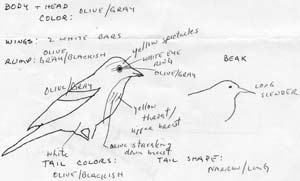 BODY + HEAD
COLOR: OLIVE/GRAY
WINGS: 2 WHITE BARS
OLIVE
RUMP: GRAY/BLACKISH
yellow spectacles
WHITE EYE
RING
OLIVE/GRAY
BEAK
LONG
SLENDER
OLIVE/GRAY
yellow
throat/
upper breast
olive streaking
down breast
White
TAIL COLORS:
OLIVE/BLACKISH
TAIL SHAPE:
NARROW/LONG